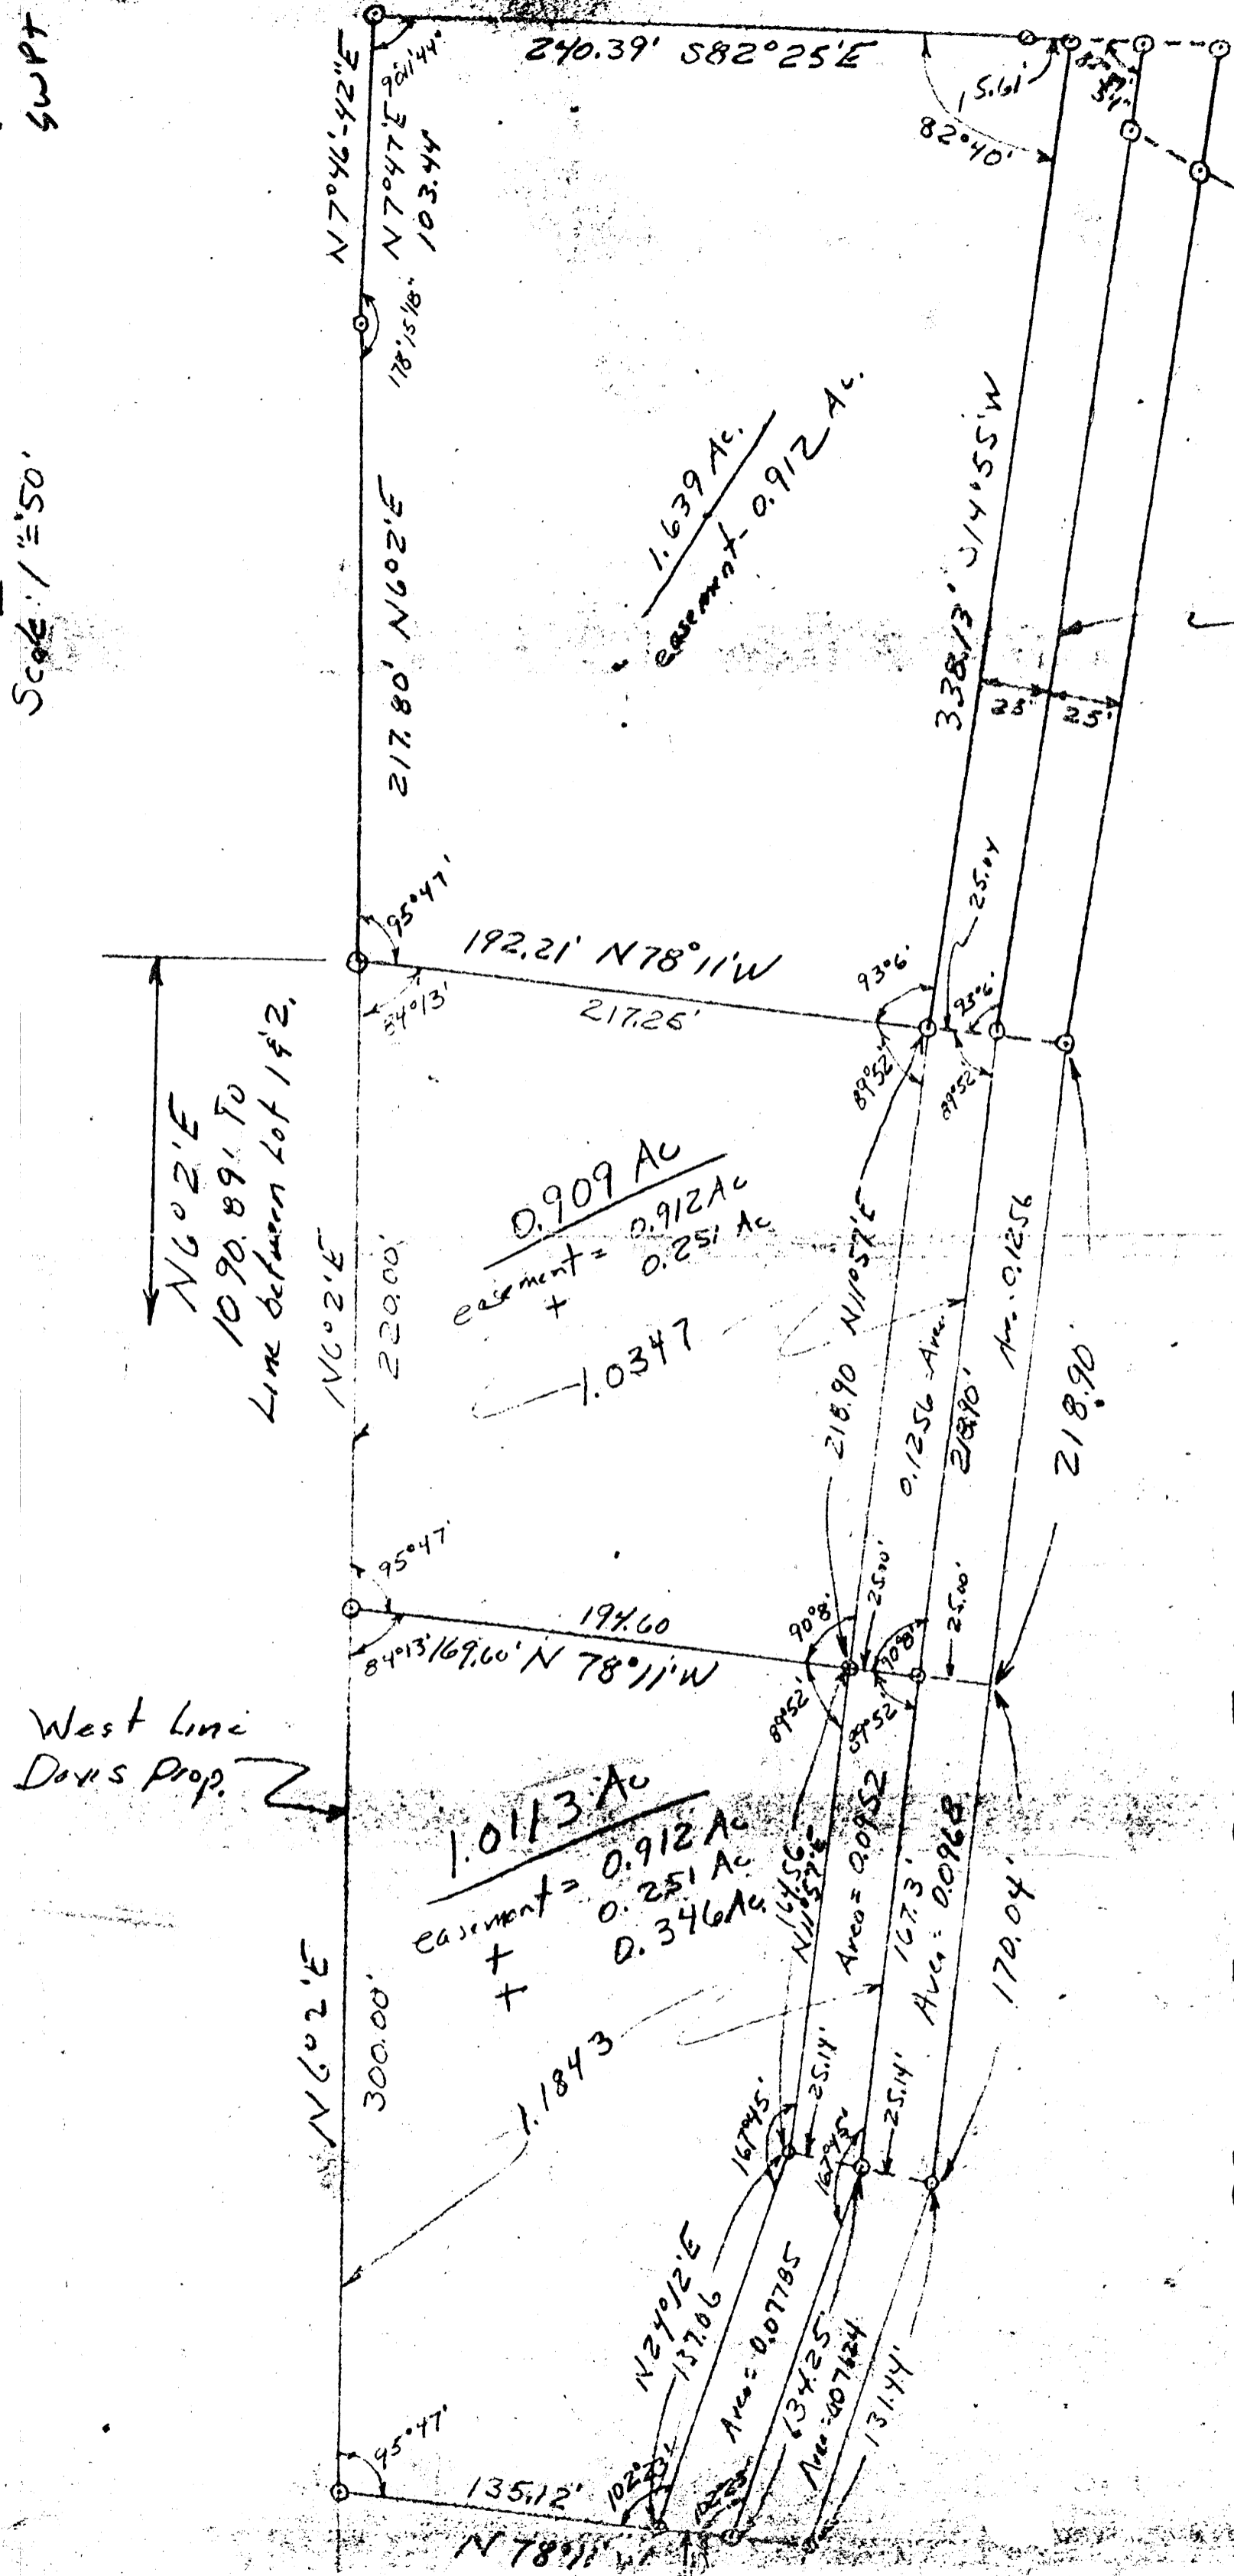 SWPT
Scale: 1"=50'
240.39' S82°25'E
N7°46'-42"E
90°11'44"
N7°47'E
103.44
15.61'
82°40'
178°15'18"
217.80' N6°02'E
1.639 Ac.
easement - 0.912 Ac.
338.13' S14°55'W
25'
25'
95°47'
192.21' N78°11'W
217.25'
84°13'
93°6'
25.04
93°6'
89°52'
89°52'
N6°02'E
1090.89' To
Line between Lot 1 & 2.
N6°2'E
220.00'
0.909 Ac
easement = 0.912 Ac
+ 0.251 Ac
1.0347
218.90 N11°57'E
0.1256 Area
218.90'
Area. 0.1256
218.90'
95°47'
194.60
84°13'
169.60' N 78°11'W
90°8'
25.00'
90°8'
25.00'
89°52'
89°52'
West Line
Davis Prop.
1.0113 Ac
easement = 0.912 Ac
+ 0.251 Ac
+ 0.346 Ac.
164.56
N11°57'E
Area = 0.0952
167.3'
Area = 0.0968
170.04'
N6°02'E
300.00'
1.1843
167°45'
25.14'
167°45'
25.14'
N24°12'E
137.06
Area = 0.07785
134.25'
131.44'
95°47'
135.12'
102°23'
102°23'
N 78°11' W